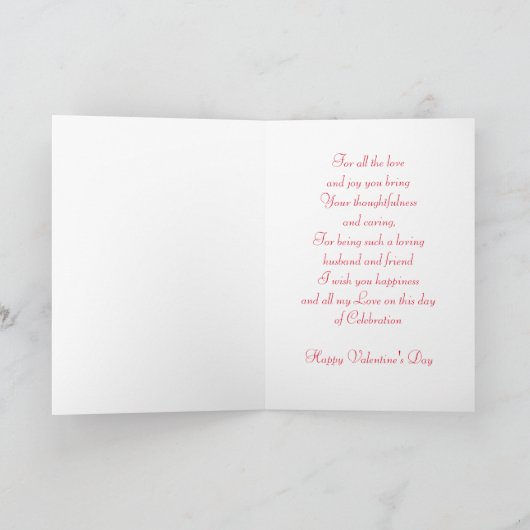 For all the love
and joy you bring
Your thoughtfulness
and caring,
For being such a loving
husband and friend
I wish you happiness
and all my Love on this day
of Celebration
Happy Valentine's Day